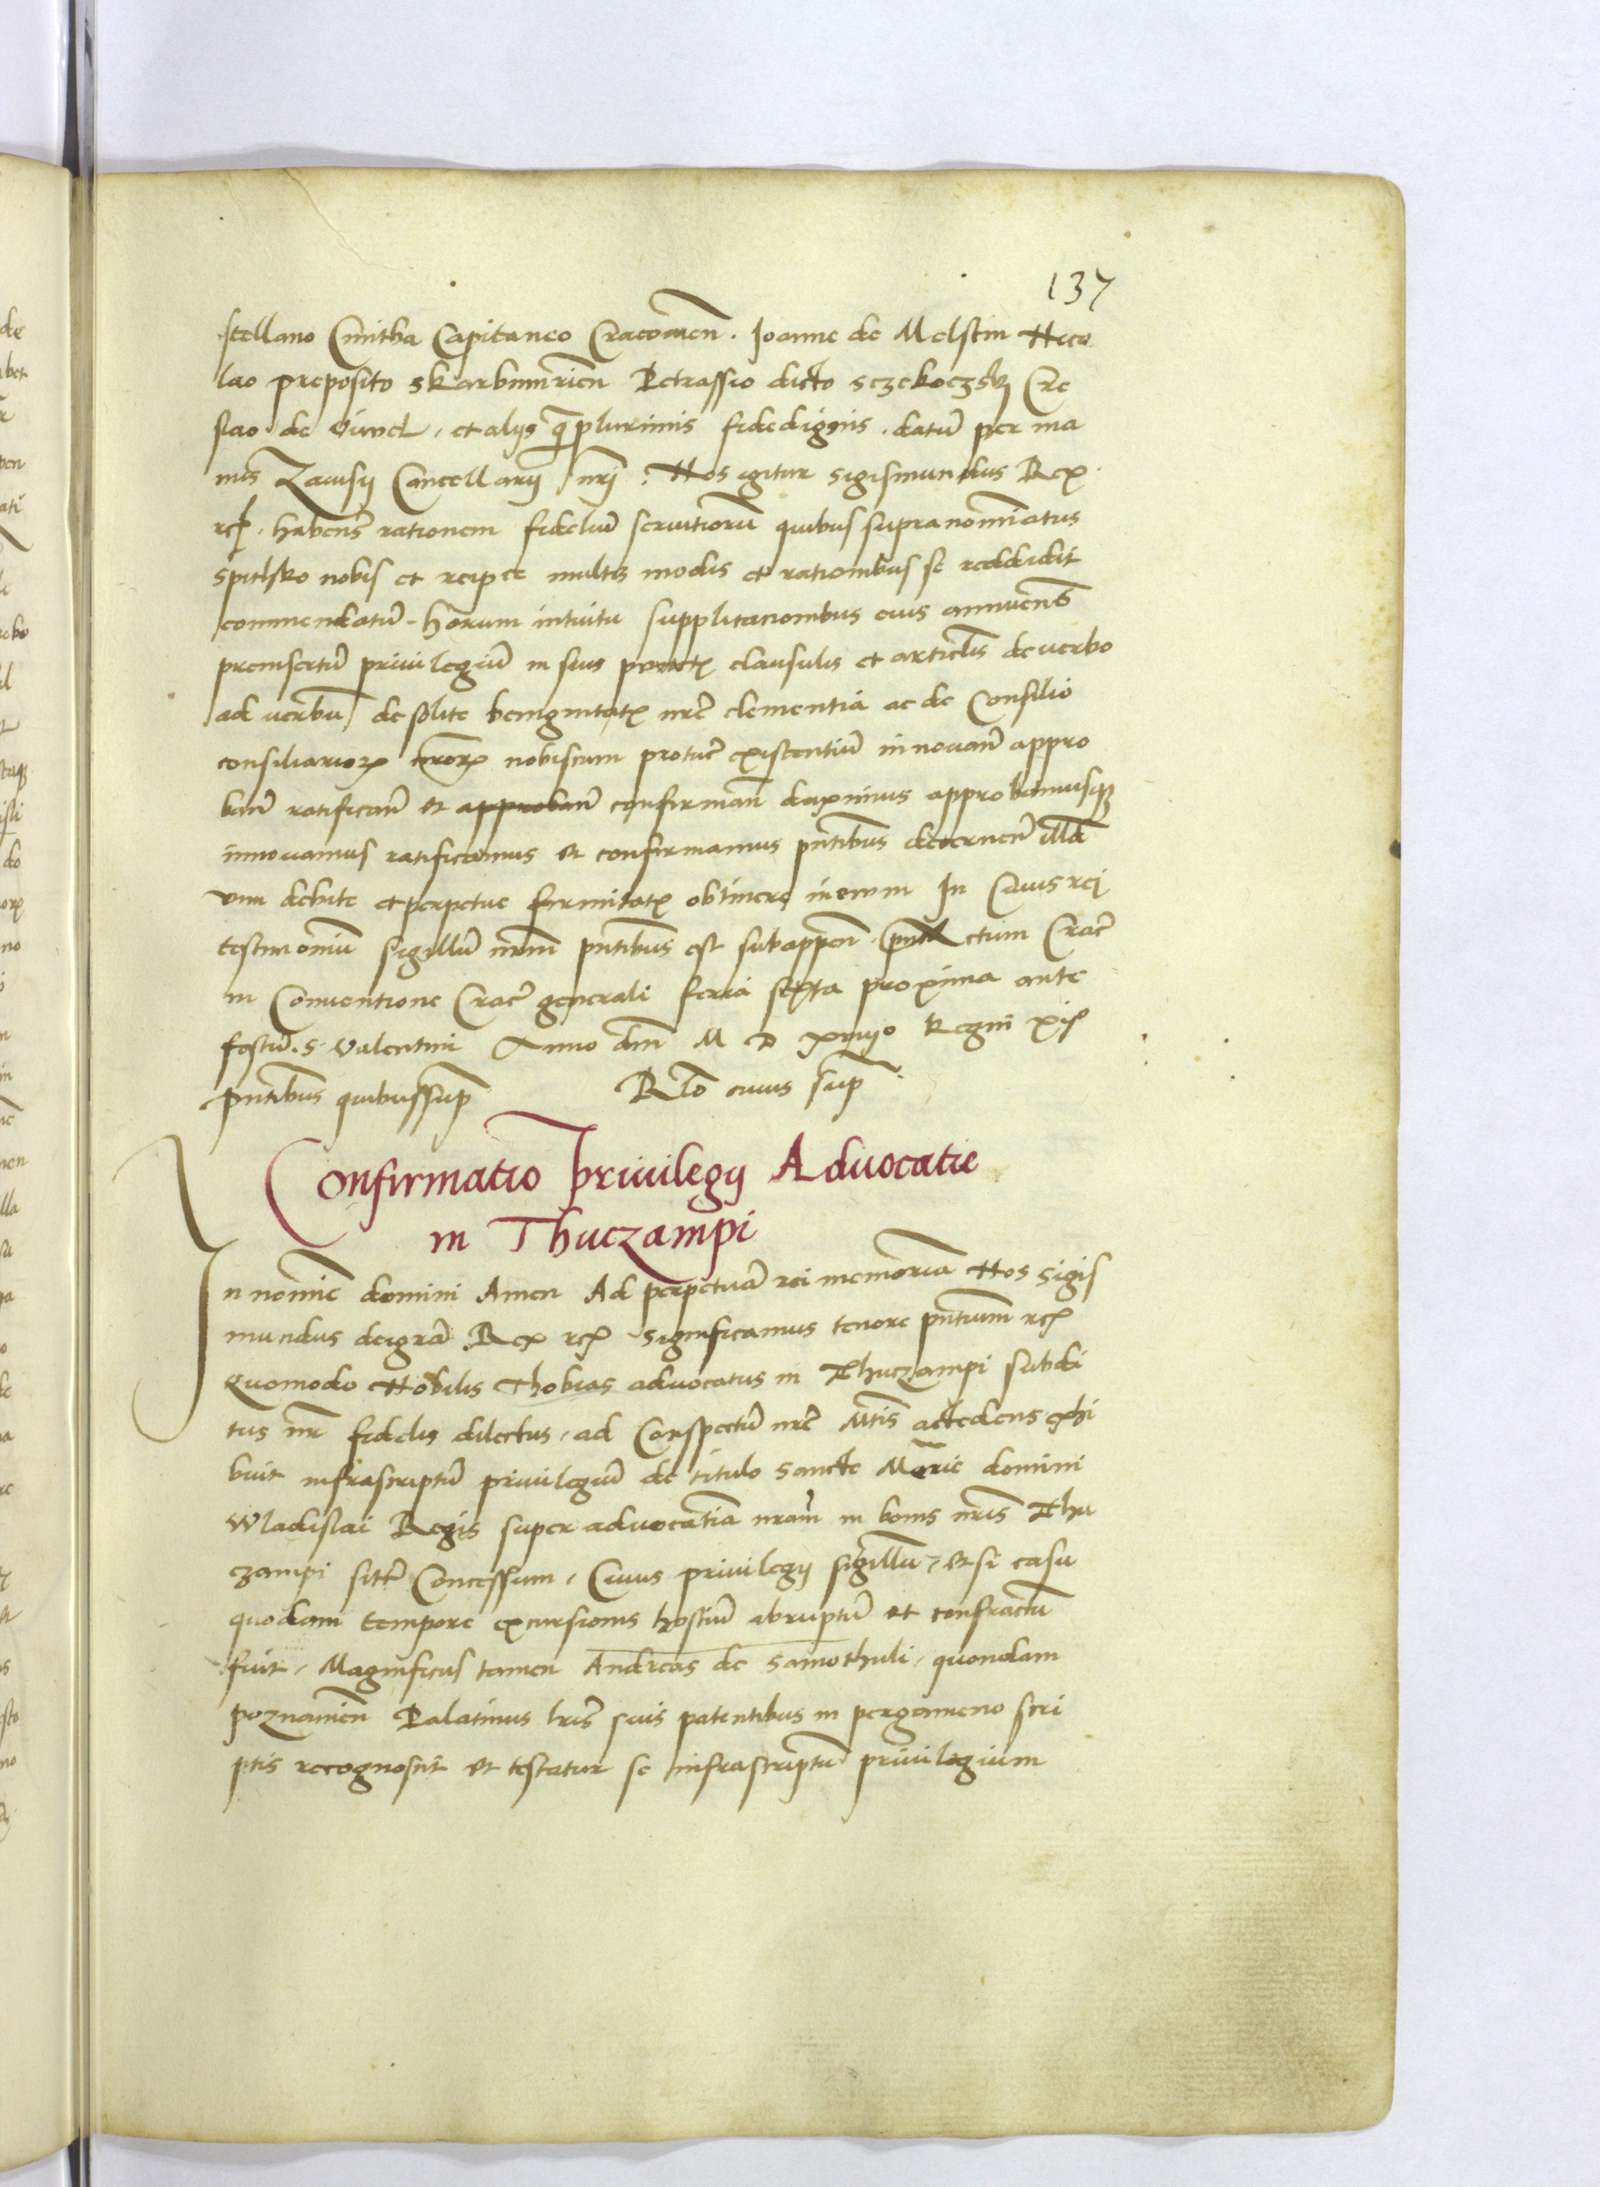 137
stellano Cmitha Capitaneo Cracovien. Joanne de Melstin Nico
lao preposito skarbimirien Petrassio dicto sczekoczsky Cre
slao de et alijs q̃plurimis fidedignis. datũ per ma
nus Zavisij Cancellarij nrj. Nos igitur Sigismundus Rex
rcͥ. habens rationem fideliũ serviтiorũ quibus supranominatus
spithko nobis et reip ce multis modis et rationibus se reddidit
commendatũ. horum intuitu supplicacionibus eius annuens
preinsertũ privilegiũ in suis punctis clausulis et articlis de verbo
ad verbũ de solite benignitatis nre clementia ac de Consilio
consiliarioꝝ nroꝝ nobiscum protunc existentiũ innovand appro
band ratificand et approband confirmand duximus approbamusq
innovamus ratificamus et confirmamus pntibus decernen illud
vim debite et perpetue firmitatis obtinere in evum In Cuius rej
testimoniũ sigillũ nrm pntibus est subappen. Actum Crac
in Conventione Crac generali feria sexta proxima ante
festũ. S. Valentini Anno dni M D xviijo Regni xij
pntibus quibus sup̃ Rlo cuius sup̃
Confirmatio privilegij Advocatie
in Thuczampi
In nomine domini Amen Ad perpetuã rei memoriã Nos Sigis
mundus dei grã Rex rcͥ significamus tenore pntium rcͥ
Quomodo Nobilis Thobias advocatus in Thuczampi subdi
tus nr fidelis dilectus, ad Conspectũ nre Mtis accedens exhi
buit infrascriptũ privilegiũ de titulo sancte Marie domini
Wladislai Regis super advocatiã nram in bonis nris Thu
czampi sitt Concessum, Cuius privilegij sigillũ, etsi casu
quodam tempore excursionis hostiũ abruptũ et confractũ
fuit, Magnificus tamen Andreas de Samothuli, quondam
poznanien Palatinus lris suis patentibus in pergameno scri
ptis recognoscit et testatur se infrascriptũ privilegium